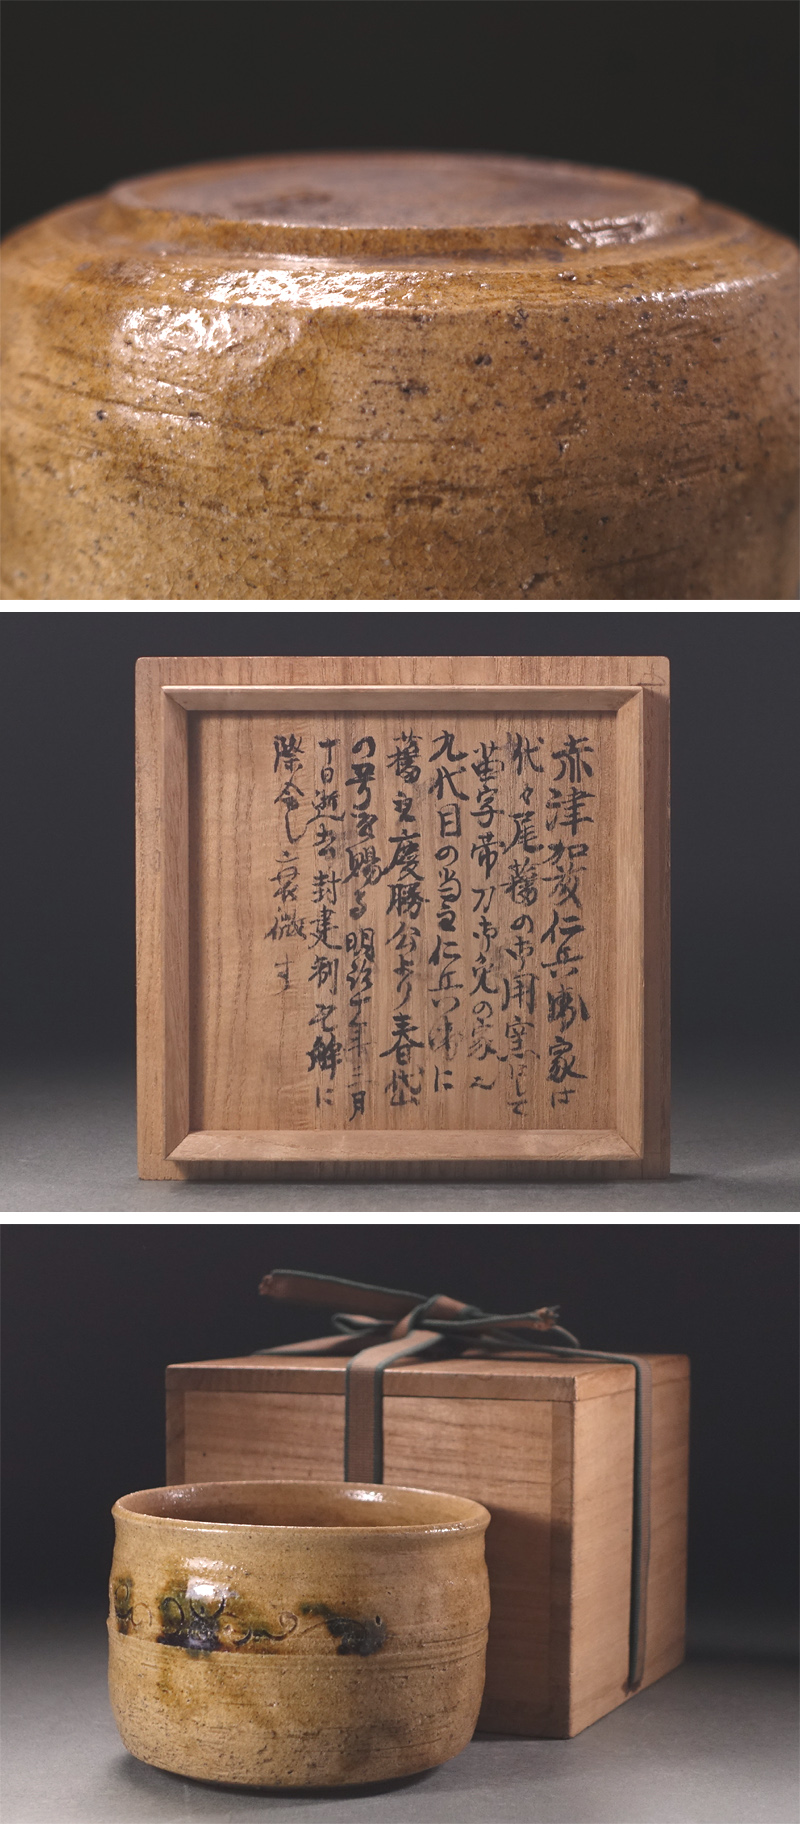 赤津加藤仁兵衛家は
代々尾藩の御用窯にして
苗字帯刀御免の家ん
九代目の当主仁兵衛に
藩主慶勝公より春岱
の号を賜る明治十年三月
十日逝去封建制瓦解に
際会し衰微す